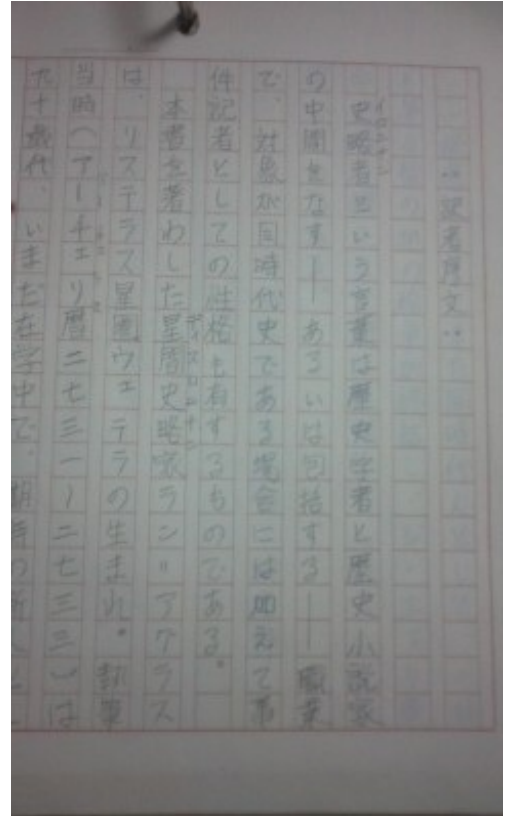 ‥訳者序文‥
史略者という言葉は歴史学者と歴史小説家
の中間をなす——あるいは包括する——職業
で、対象が同時代史である場合には加えて事
件記者としての性格も有するものである。
本書を著わした星間史略家ラン＝アクラス
は、リステラス星圏ウェテラの生まれ。執筆
当時（アーチェリ暦二七三一〜二七三三）は
九十歳代、いまだ在学中で、